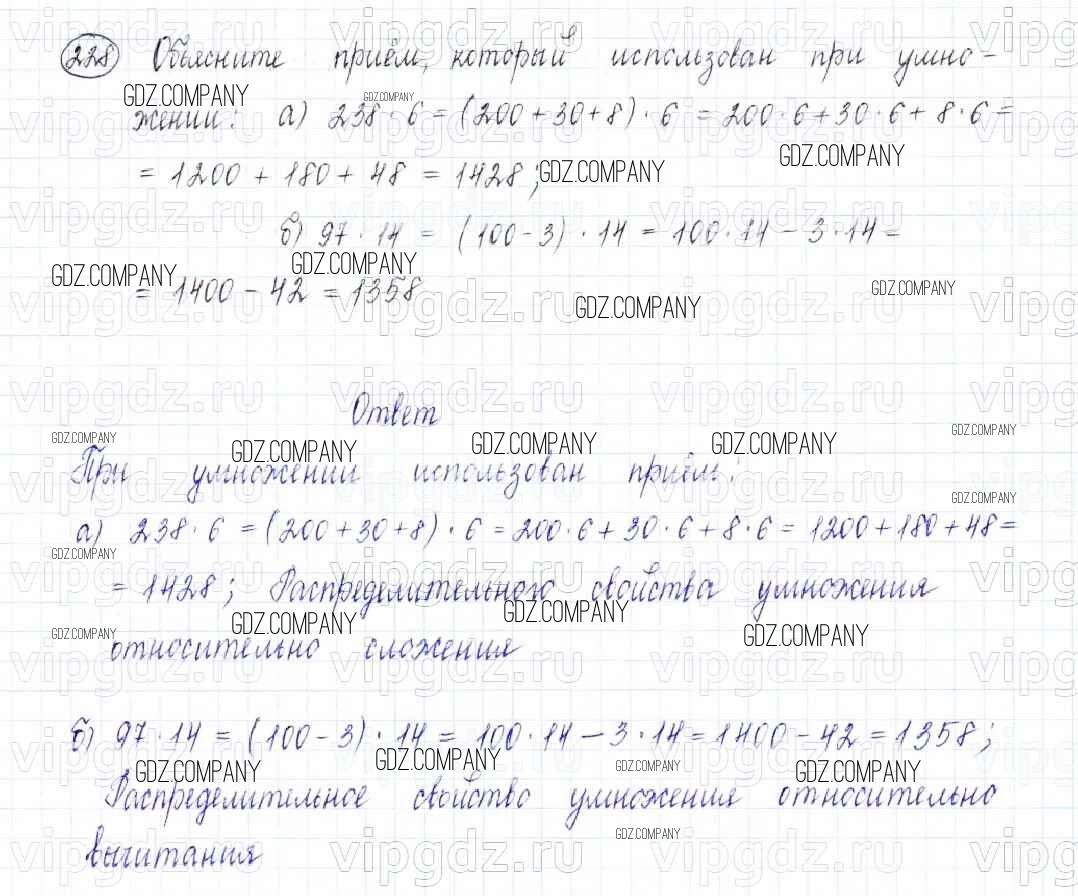 228 Объясните приём, который использован при умно-
жении: а) 238 · 6 = (200 + 30 + 8) · 6 = 200 · 6 + 30 · 6 + 8 · 6 =
= 1200 + 180 + 48 = 1428;
б) 97 · 14 = (100 - 3) · 14 = 100 · 14 - 3 · 14 =
= 1400 - 42 = 1358
Ответ
При умножении использован приём:
а) 238 · 6 = (200 + 30 + 8) · 6 = 200 · 6 + 30 · 6 + 8 · 6 = 1200 + 180 + 48 =
= 1428; Распределительного свойства умножения
относительно сложения
б) 97 · 14 = (100 - 3) · 14 = 100 · 14 - 3 · 14 = 1400 - 42 = 1358;
Распределительное свойство умножения относительно
вычитания
GDZ.COMPANY
vipgdz.ru